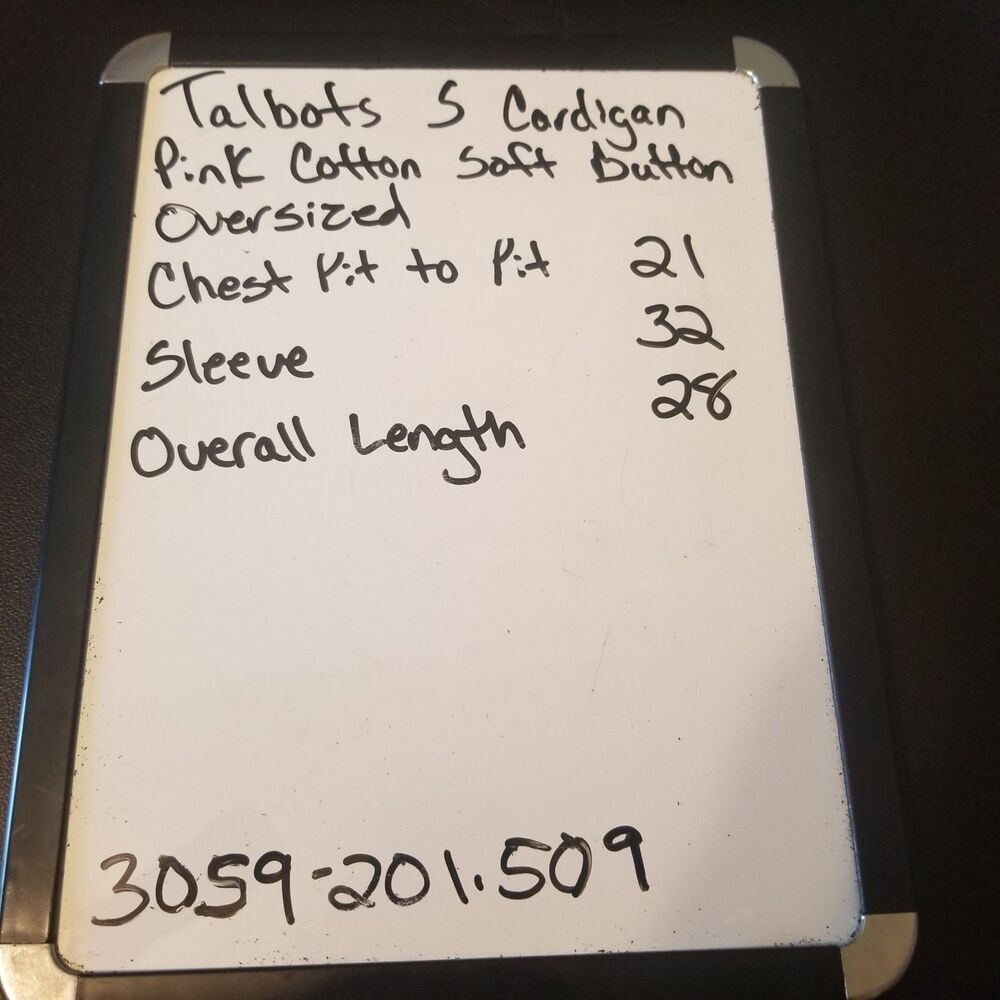 Talbots S Cardigan
Pink Cotton Soft Button
Oversized
Chest Pit to Pit 21
Sleeve 32
Overall Length 28
3059-201.509